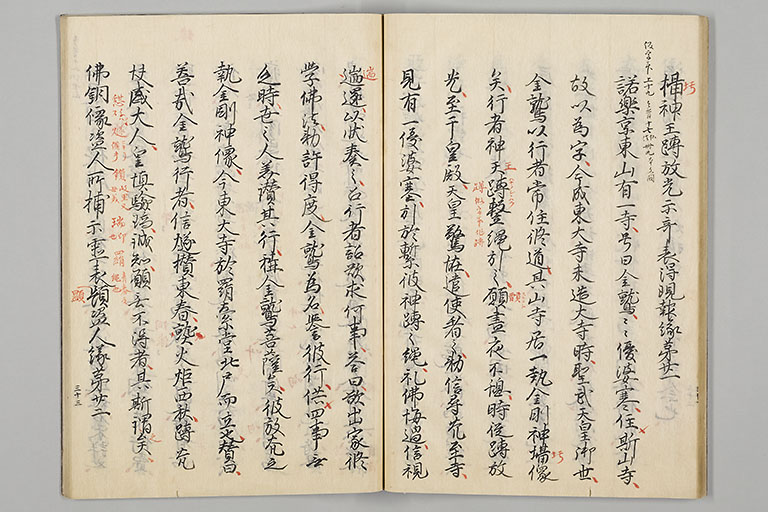 神王蹲放光示奇表得現報縁第廿一
諾樂京東山有一寺号曰金鷲ゝゝ優婆塞住斯山寺
故以為字今成東大寺未造大寺時聖武天皇御世
金鷲以行者常住修道其山寺居一執金剛神像
矣行者神王蹲繋繩引之願晝夜不憩時從蹲放
光至于皇殿天皇驚恠遣使看之勅信尋光至寺
見有一優婆塞引於繋彼神蹲之繩礼佛悔過信視
遄還以状奏之召行者詔欲求何事答曰欲出家修
学佛法勅許得度金鷲為名誉彼行供四事无
乏時世之人美讃其行称金鷲菩薩矣彼放光之
執金剛神像今東大寺於羂索堂北戸而立也賛曰
善哉金鷲行者信燧攢東春火炬西秋蹲光
扶感大人皇慎驗瑞誠知願无不得者其斯謂矣
佛銅像盗人所捕示霊表顕盗人縁第廿二
三十三